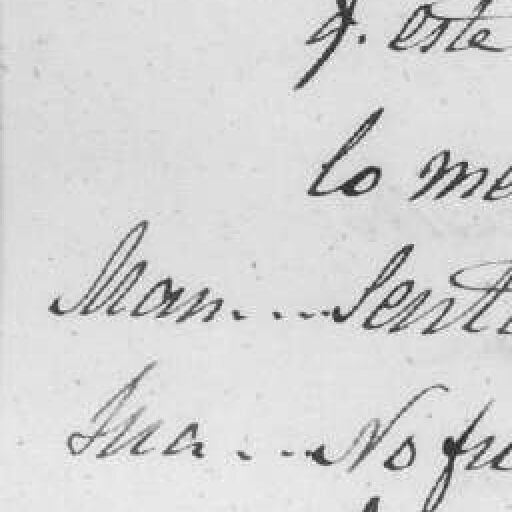 q. este
lo me
Man....Sent
Jua...No fu